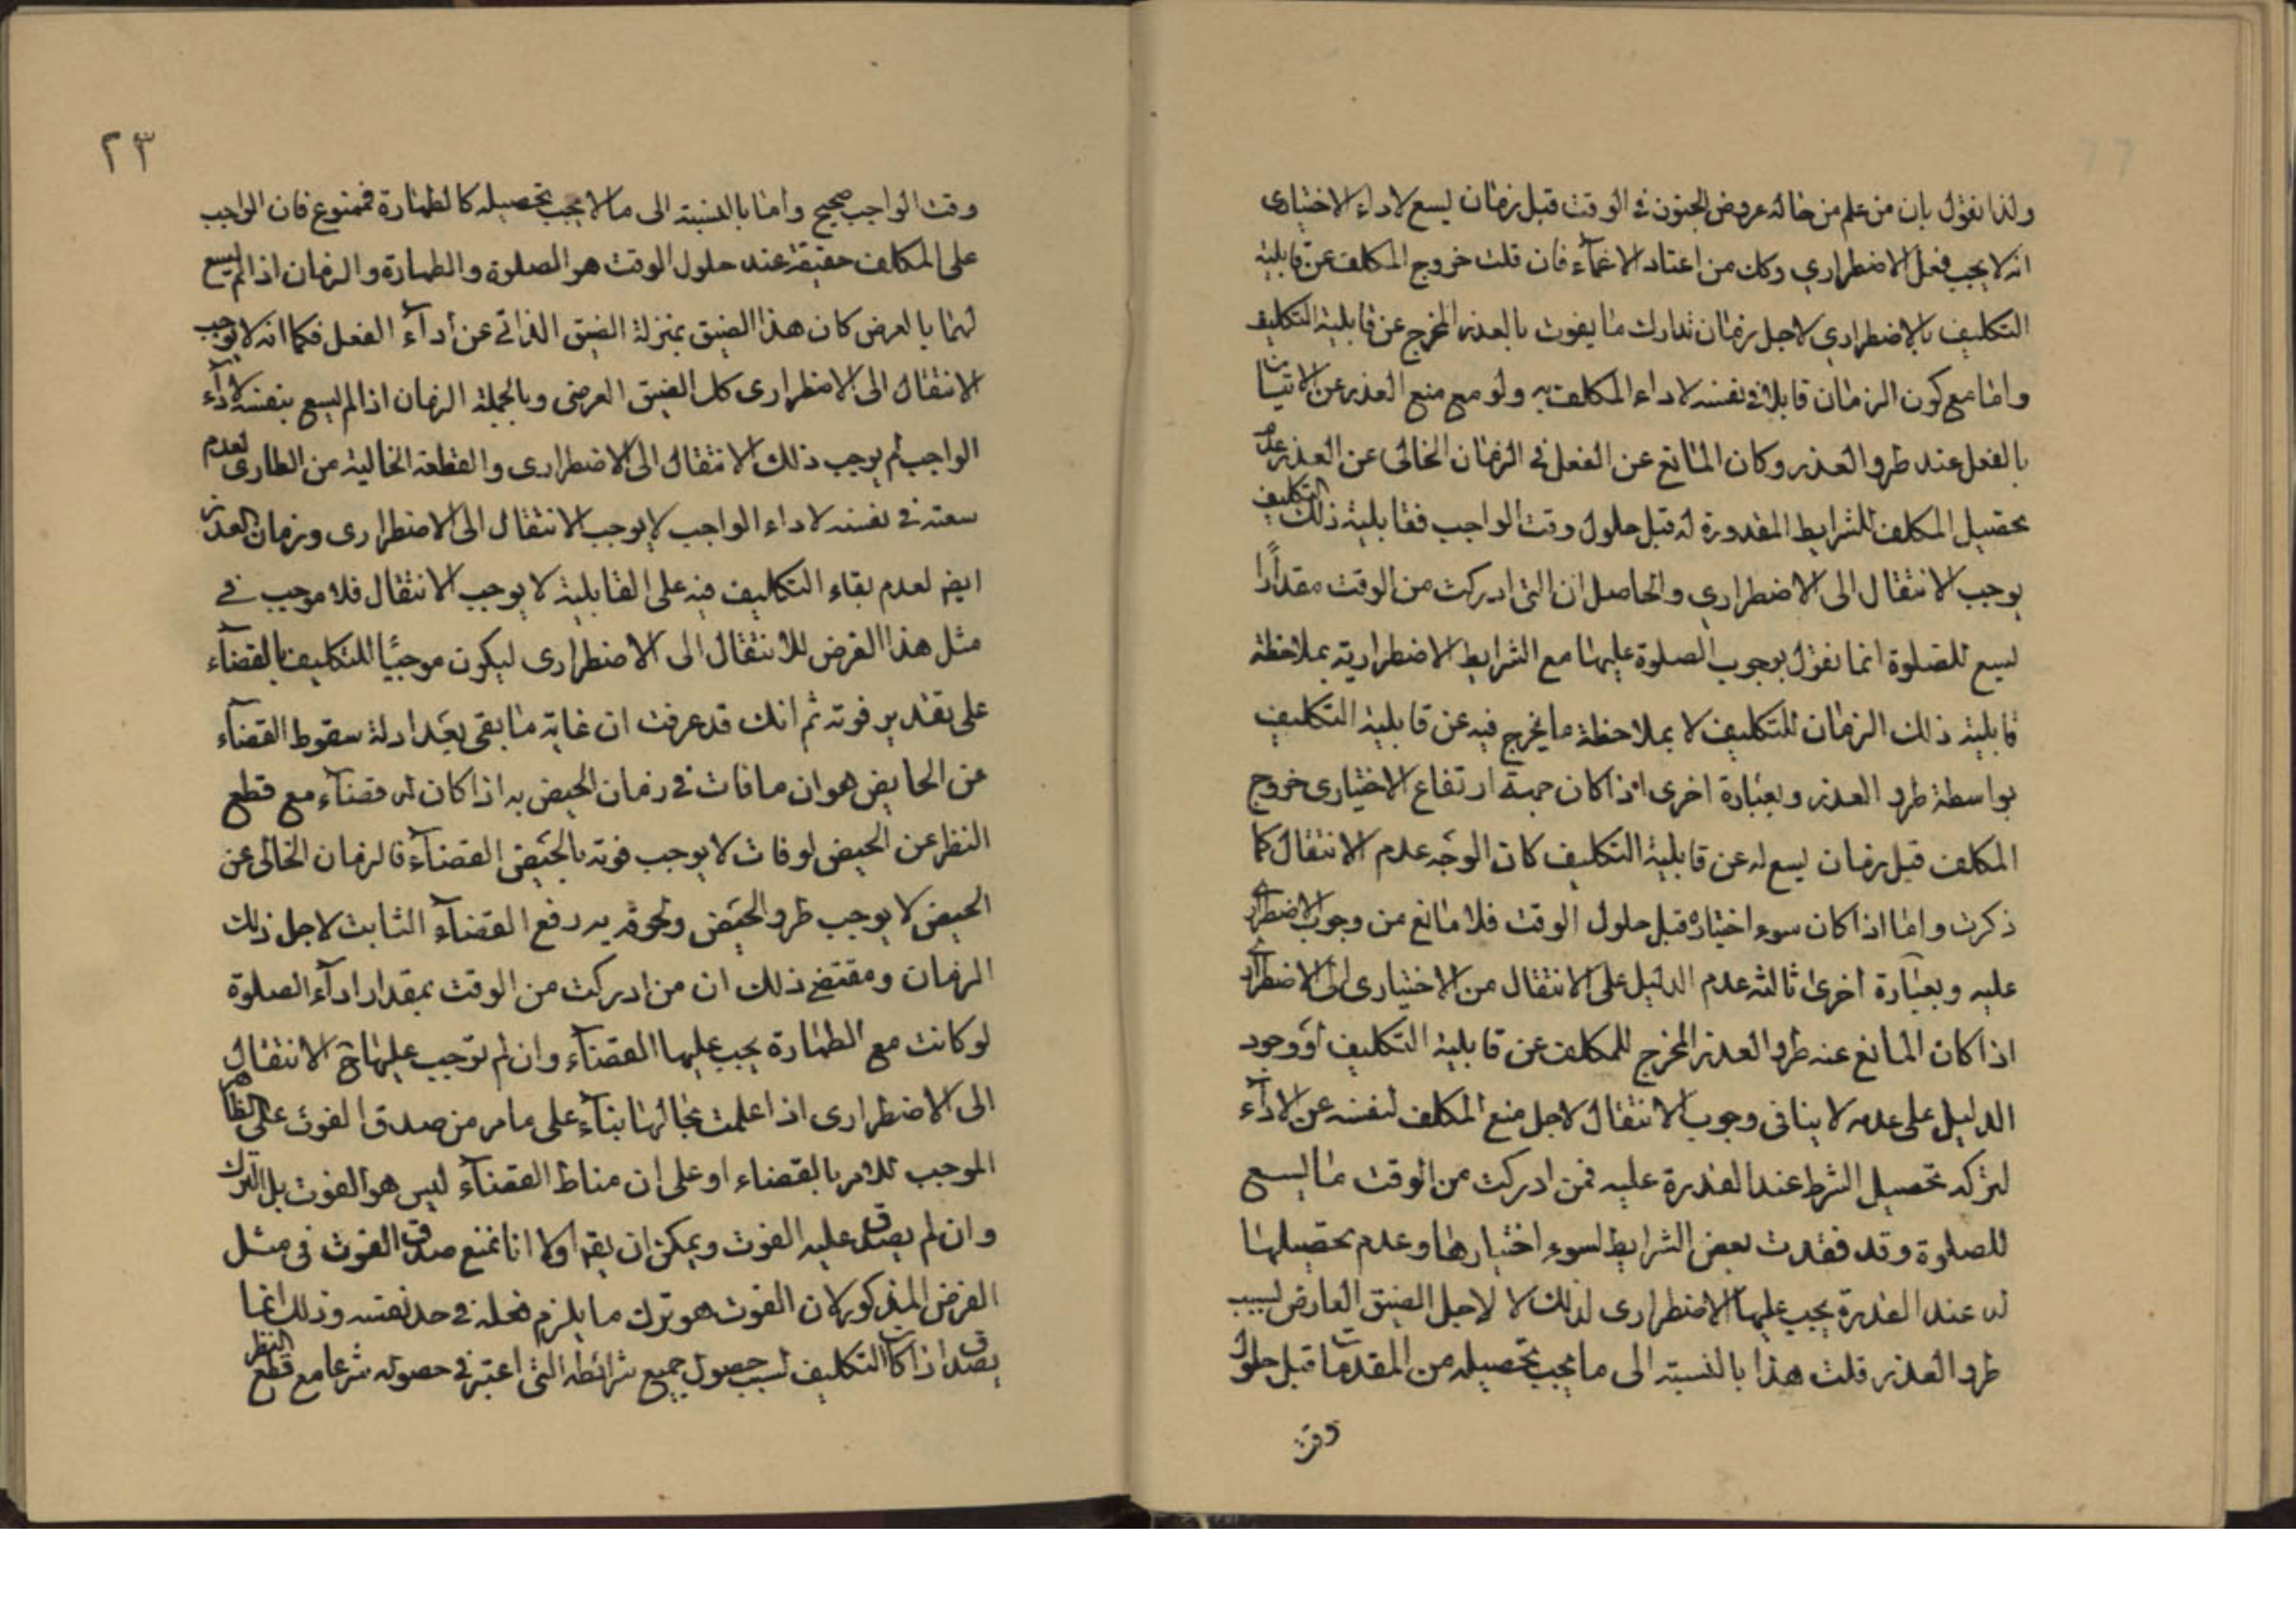 ولذا نقول بان من علم من حاله عروض الجنون في الوقت قبل زمان يسع لاداء الاختياري
انه لا يجب فعل الاضطراري وكك من اعتاد الاغمآء فان قلت خروج المكلف عن قابلية
التكليف بالاضطراري لاجل زمان تدارك ما يفوت بالعذر المخرج عن قابلية التكليف
واما مع كون الزمان قابلا في نفسه لاداء المكلف به ولو مع منع العذر عن الاتيان
بالفعل عند طرو العذر وكان المانع عن الفعل في الزمان الخالى عن العذر عدم
تحصيل المكلف للشرايط المقدورة له قبل حلول وقت الواجب فقابلية ذلك التكليف
يوجب الانتقال الى الاضطراري والحاصل ان التى ادركت من الوقت مقدارا
يسع للصلوة انما نقول بوجوب الصلوة عليها مع الشرايط الاضطرارية بملاحظة
قابلية ذلك الزمان للتكليف لا بملاحظة ما يخرج فيه عن قابلية التكليف
بواسطة طرو العذر وبعبارة اخرى اذا كان جهة ارتفاع الاختيارى خروج
المكلف قبل زمان يسع له عن قابلية التكليف كان الوجه عدم الانتقال كما
ذكرت واما اذا كان سوء اختياره قبل حلول الوقت فلا مانع من وجوب الاضطراري
عليه وبعبارة اخرى ثالثة عدم الدليل على الانتقال من الاختيارى الى الاضطراري
اذا كان المانع عنه طرو العذر المخرج للمكلف عن قابلية التكليف او وجود
الدليل على عدمه لا ينافى وجوب الانتقال لاجل منع المكلف لنفسه عن الادآء
لتركه تحصيل الشرط عند القدرة عليه فمن ادركت من الوقت ما يسع
للصلوة وقد فقدت بعض الشرايط لسوء اختيارها وعدم تحصيلها
له عند القدرة يجب عليها الاضطرارى لذلك لا لاجل الضيق العارض بسبب
طرو العذر قلت هذا بالنسبة الى ما يجب تحصيله من المقدمات قبل حلول
وقت
٢٣
وقت الواجب صحيح واما بالنسبة الى ما لا يجب تحصيله كالطهارة فممنوع فان الواجب
على المكلف حقيقة عند حلول الوقت هو الصلوة والطهارة والزمان اذا لم يسع
لهما بالعرض كان هذا الضيق بمنزلة الضيق الذاتي عن ادآء الفعل فكما انه لا يوجب
الانتقال الى الاضطرارى كك الضيق العرضى وبالجملة الزمان اذا لم يسع بنفسه لادآء
الواجب لم يوجب ذلك الانتقال الى الاضطرارى والقطعة الخالية عن الطارى لعدم
سعته في نفسه لاداء الواجب لا يوجب الانتقال الى الاضطرارى وزمان العذر
ايض لعدم بقاء التكليف فيه على القابلية لا يوجب الانتقال فلا موجب في
مثل هذا الفرض للانتقال الى الاضطرارى ليكون موجبًا للتكليف بالقضآء
على تقدير فوته ثم انك قد عرفت ان غاية ما بقى بعد ادلة سقوط القضآء
عن الحايض هو ان ما فات في زمان الحيض به اذا كان له قضآء مع قطع
النظر عن الحيض لو فات لا يوجب فوته بالحيض القضآء فالزمان الخالى عن
الحيض لا يوجب طرو الحيض ولحوقه به رفع القضآء الثابت لاجل ذلك
الزمان ومقتضى ذلك ان من ادركت من الوقت بمقدار ادآء الصلوة
لو كانت مع الطهارة يجب عليها القضآء وان لم توجب عليها ح الانتقال
الى الاضطرارى اذا علمت بحالها بنآء على ما مر من صدق الفوت على الظاهر
الموجب للامر بالقضاء او على ان مناط القضآء ليس هو الفوت بل الترك
وان لم يصدق عليه الفوت ويمكن ان يقه اولا انا نمنع صدق الفوت فى مثل
الفرض المذكور لان الفوت هو ترك ما يلزم فعله في حد نفسه وذلك انما
يصدق اذا كان التكليف بسبب حصول جميع شرائطه التى اعتبر في حصوله شرعا مع قطع النظر